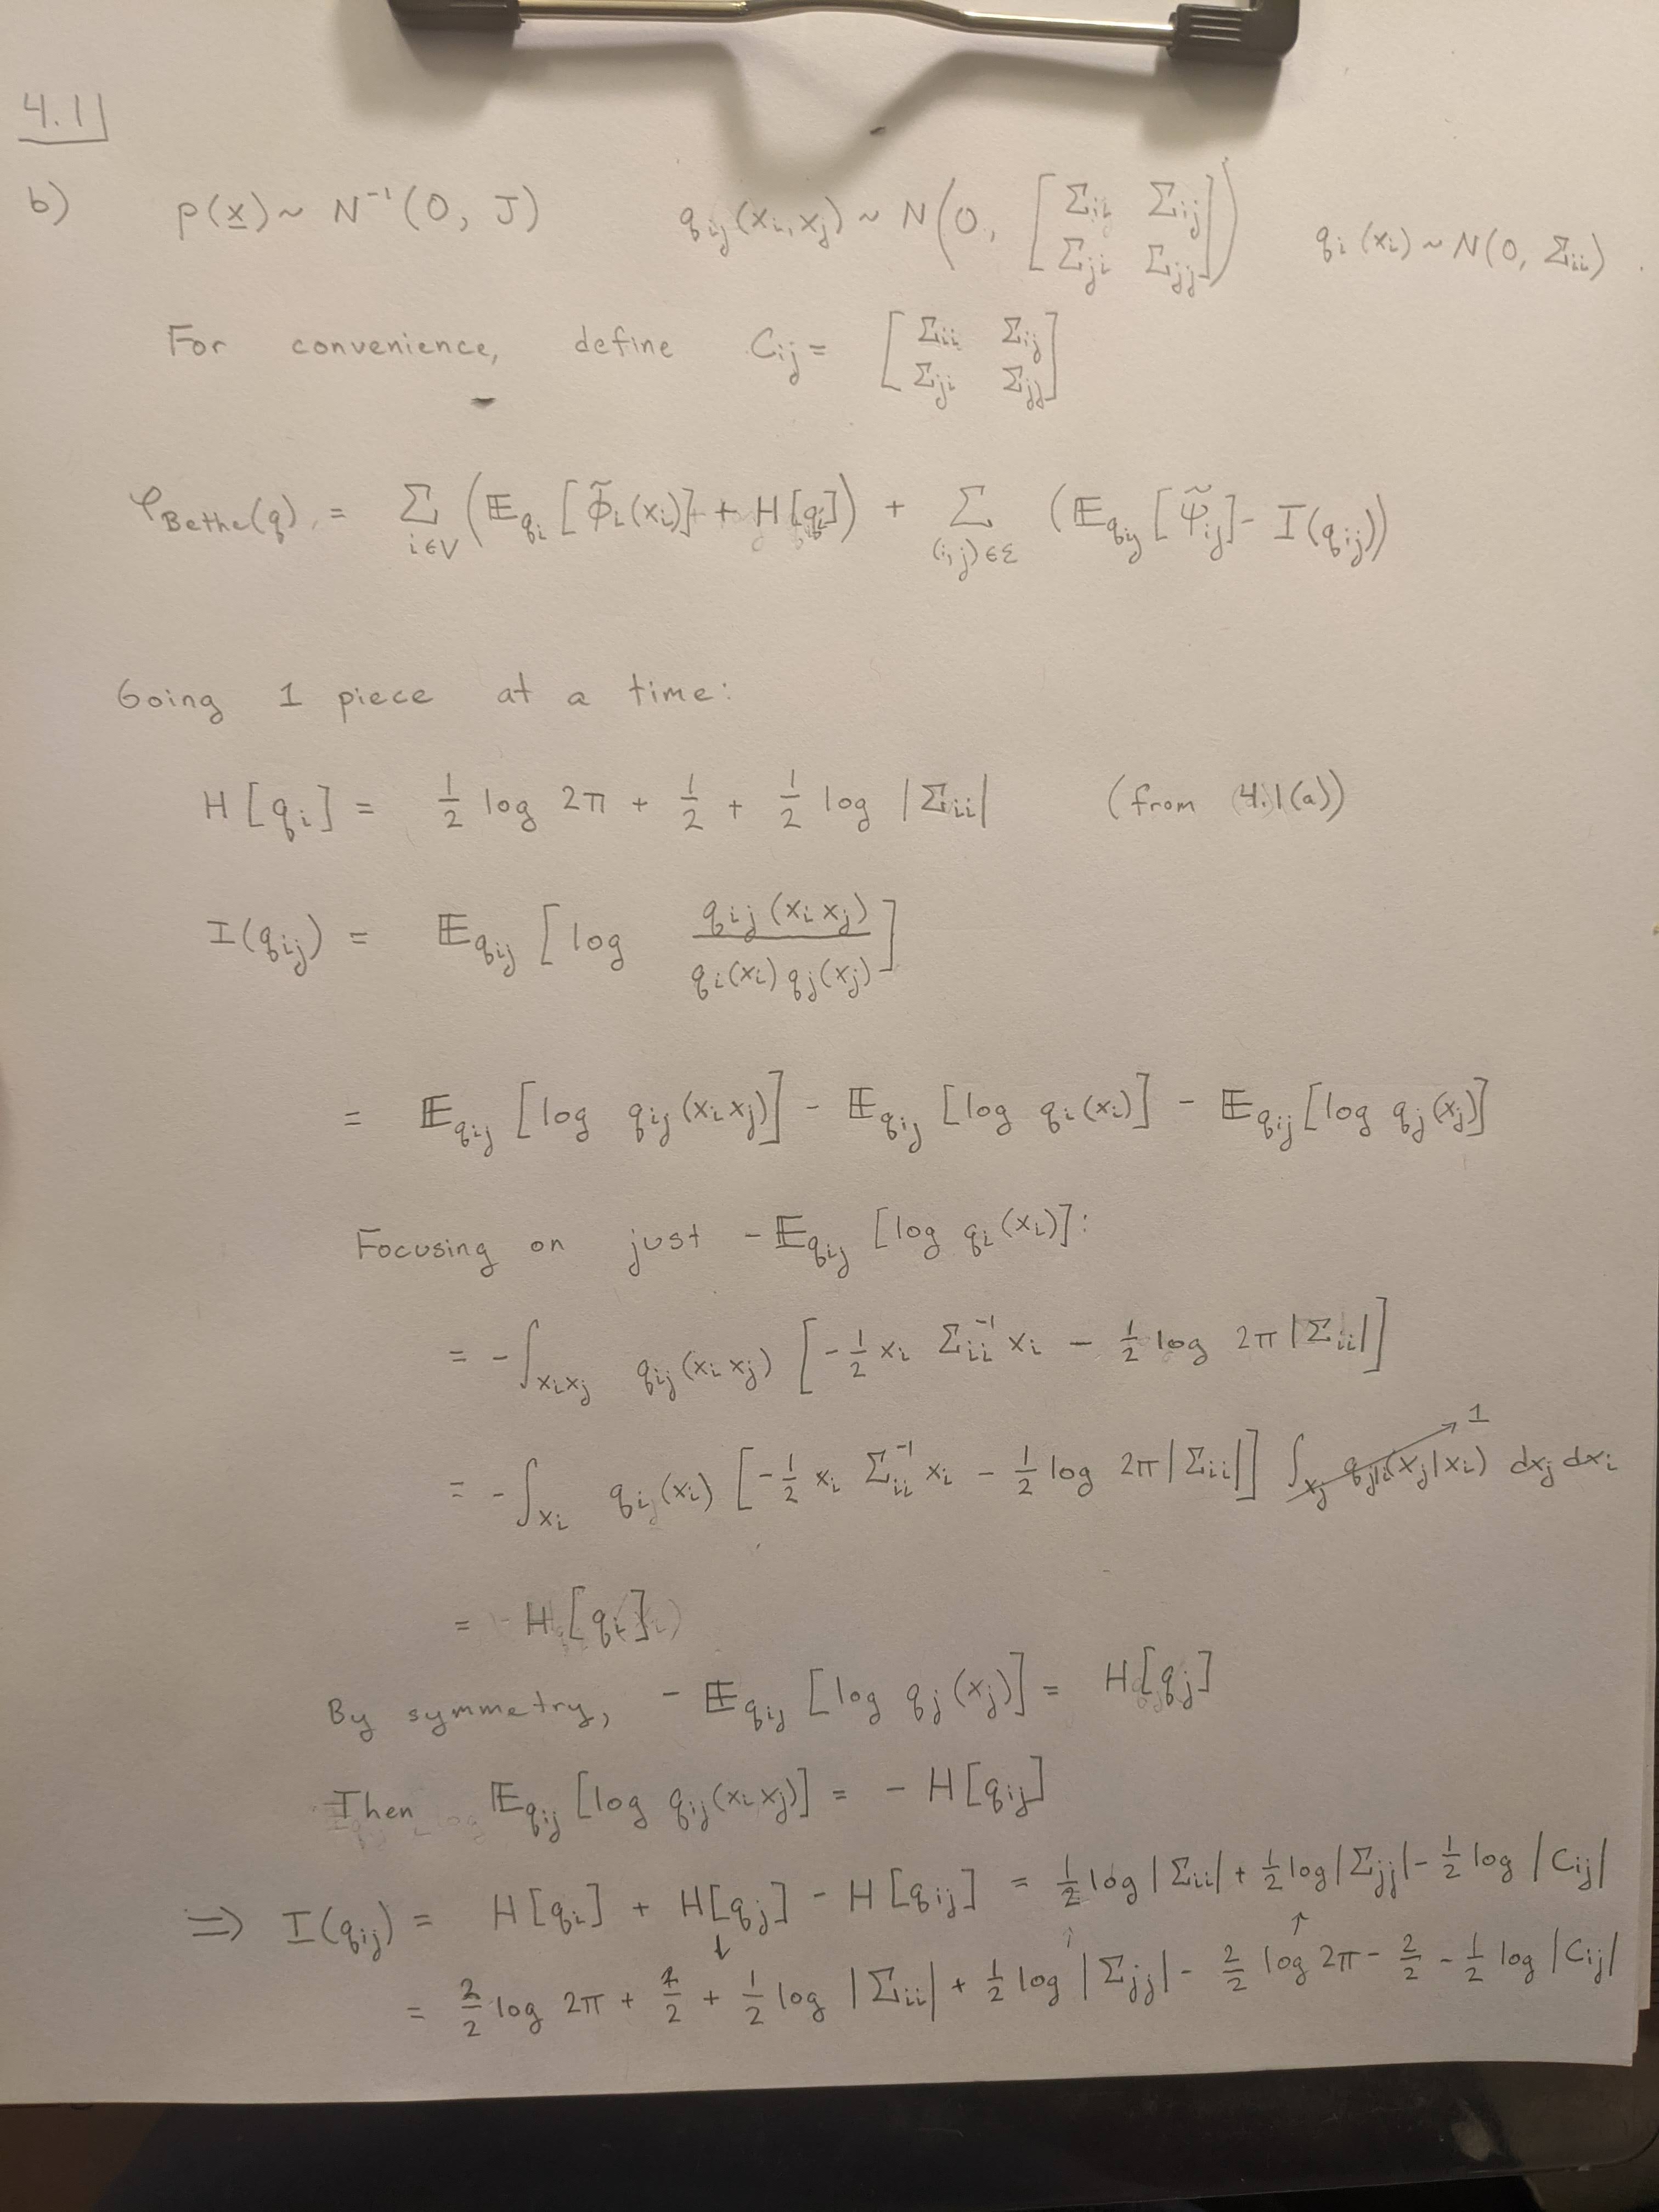 4.1
b) p(x) ~ N⁻¹(0, J) q_ij(x_i, x_j) ~ N(0, [Σ_ii Σ_ij; Σ_ji Σ_jj]) q_i(x_i) ~ N(0, Σ_ii).
For convenience, define C_ij = [Σ_ii Σ_ij; Σ_ji Σ_jj]
φ_Bethe(q) = Σ_{i∈V} (𝔼_{q_i}[φ̃_i(x_i)] + H[q_i]) + Σ_{(i,j)∈ℰ} (𝔼_{q_ij}[ψ̃_ij] - I(q_ij))
Going 1 piece at a time:
H[q_i] = 1/2 log 2π + 1/2 + 1/2 log |Σ_ii| (from 4.1(a))
I(q_ij) = 𝔼_{q_ij}[log q_ij(x_i x_j) / q_i(x_i) q_j(x_j)]
= 𝔼_{q_ij}[log q_ij(x_i x_j)] - 𝔼_{q_ij}[log q_i(x_i)] - 𝔼_{q_ij}[log q_j(x_j)]
Focusing on just -𝔼_{q_ij}[log q_i(x_i)]:
= -∫_{x_i x_j} q_ij(x_i x_j) [-1/2 x_i Σ_ii⁻¹ x_i - 1/2 log 2π|Σ_ii|]
= -∫_{x_i} q_i(x_i) [-1/2 x_i Σ_ii⁻¹ x_i - 1/2 log 2π|Σ_ii|] ∫_{x_j} q_{j|i}(x_j|x_i) dx_j dx_i → 1
= H[q_i]
By symmetry, -𝔼_{q_ij}[log q_j(x_j)] = H[q_j]
Then 𝔼_{q_ij}[log q_ij(x_i x_j)] = -H[q_ij]
⇒ I(q_ij) = H[q_i] + H[q_j] - H[q_ij] = 1/2 log|Σ_ii| + 1/2 log|Σ_jj| - 1/2 log|C_ij|
↓ ↑
= 2/2 log 2π + 2/2 + 1/2 log |Σ_ii| + 1/2 log |Σ_jj| - 2/2 log 2π - 2/2 - 1/2 log |C_ij|